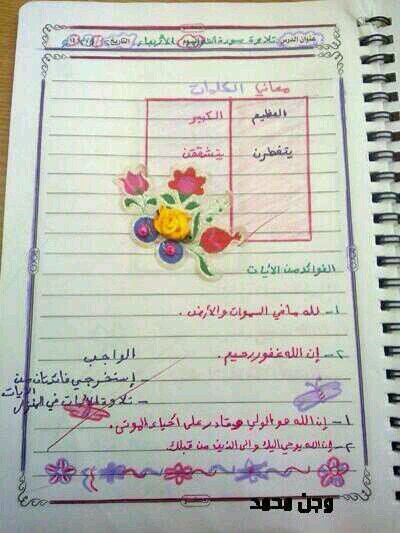 عنوان الدرس تلاوة سورة اليوم الأربعاء التاريخ
معاني الكلمات
العظيم الكبير
يتفطرن يتشققن
الفوائد من الآيات
١- لله مافي السموات والأرض.
٢- إن الله غفور رحيم.
الواجب
إستخرجي فائدتان من الآيات
- تلاوة الآيات في المنزل
١- إن الله هو الولي قادر على إحياء الموتى.
٢- إن الله يوحي اليك والى الذين من قبلك
وجن محمد